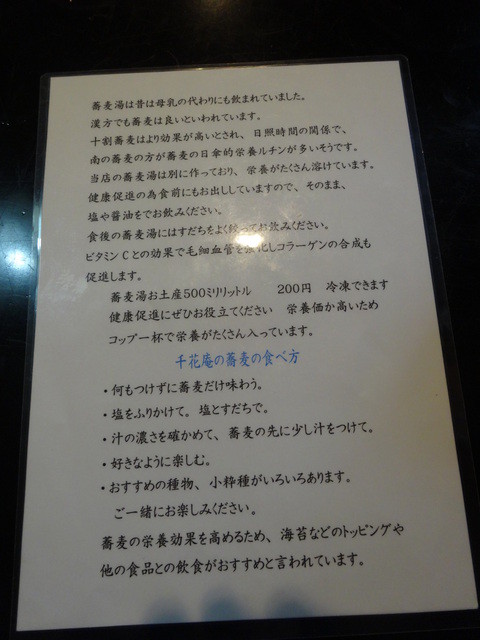 蕎麦湯は昔は母乳の代わりにも飲まれていました。
漢方でも蕎麦は良いといわれています。
十割蕎麦はより効果が高いとされ、日照時間の関係で、
南の蕎麦の方が蕎麦の日傘的栄養ルチンが多いそうです。
当店の蕎麦湯は別に作っており、栄養がたくさん溶けています。
健康促進の為食前にもお出ししていますので、そのまま、
塩や醤油をでお飲みください。
食後の蕎麦湯にはすだちをよく絞ってお飲みください。
ビタミンCとの効果で毛細血管を強化しコラーゲンの合成も
促進します。
蕎麦湯お土産500ミリリットル 200円 冷凍できます
健康促進にぜひお役立てください 栄養価か高いため
コップ一杯で栄養がたくさん入っています。
千花庵の蕎麦の食べ方
・何もつけずに蕎麦だけ味わう。
・塩をふりかけて。塩とすだちで。
・汁の濃さを確かめて、蕎麦の先に少し汁をつけて。
・好きなように楽しむ。
・おすすめの種物、小粋種がいろいろあります。
ご一緒にお楽しみください。
蕎麦の栄養効果を高めるため、海苔などのトッピングや
他の食品との飲食がおすすめと言われています。